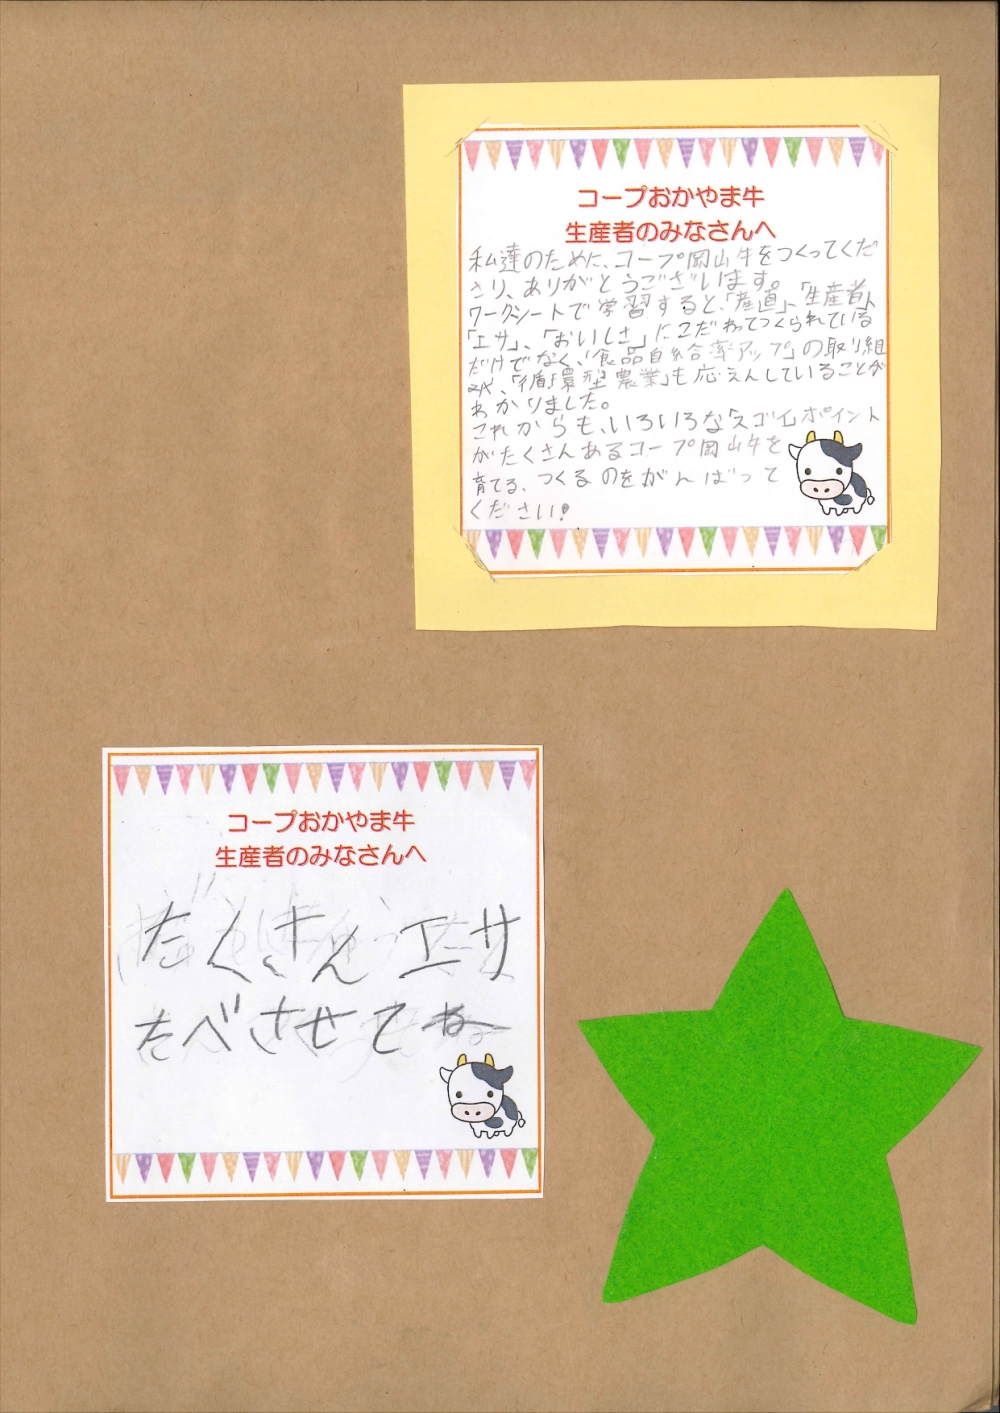 コープおかやま牛
生産者のみなさんへ
私達のために、コープ岡山牛をつくってくだ
さり、ありがとうございます。
ワークシートで学習すると、「産直」、「生産者」、
「エサ」、「おいしさ」にこだわってつくられている
だけでなく、「食品自給率アップ」の取り組
み、「循環型農業」も応えんしていることが
わかりました。
これからも、いろいろな「スゴイ」ポイント
がたくさんあるコープ岡山牛を
育てる、つくるのをがんばって
ください!
コープおかやま牛
生産者のみなさんへ
たくさん エサ
たべさせてね